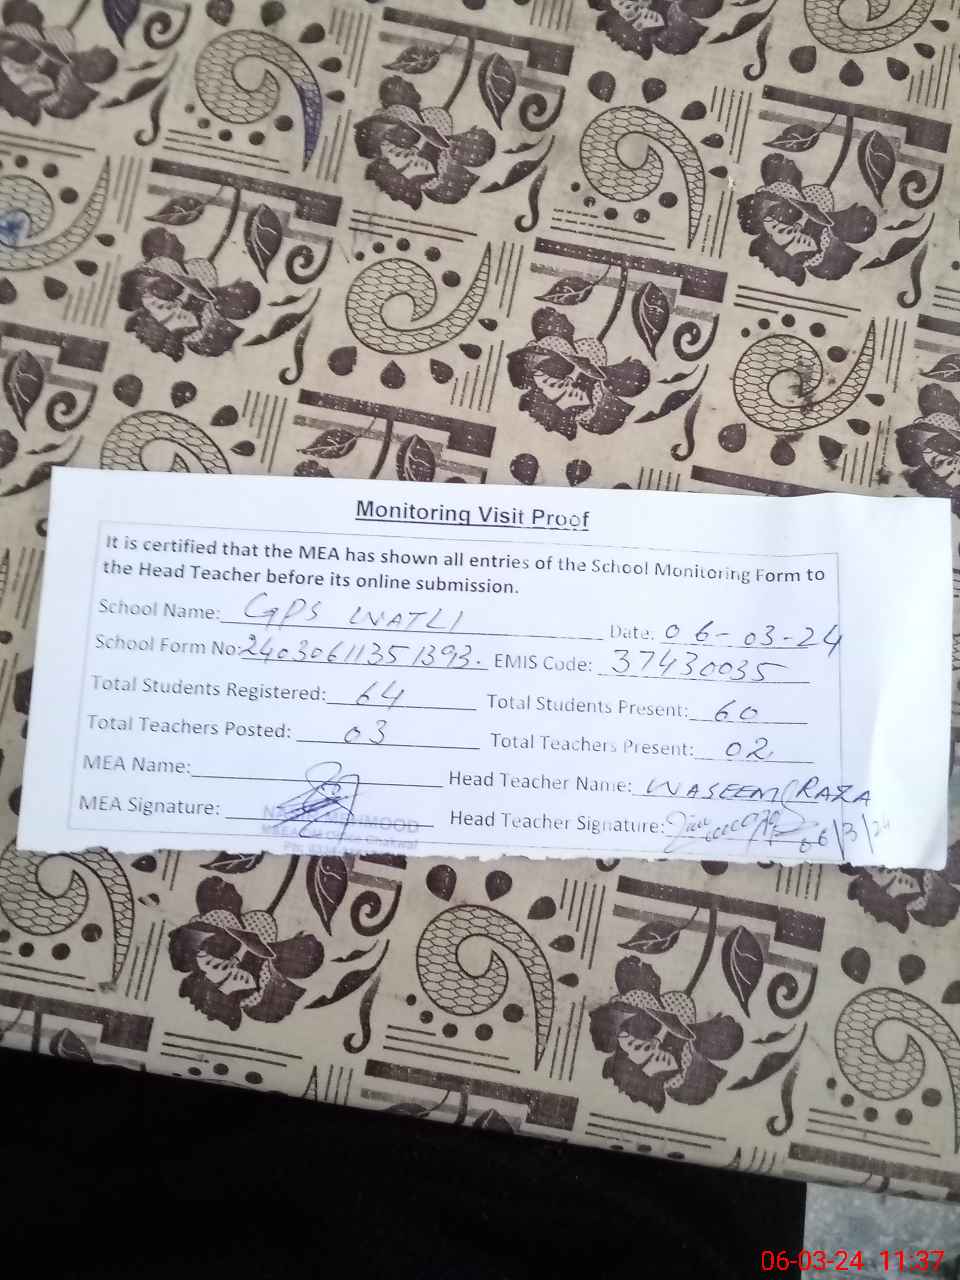 Monitoring Visit Proof
It is certified that the MEA has shown all entries of the School Monitoring Form to
the Head Teacher before its online submission.
School Name: GPS WATLI Date: 06-03-24
School Form No: 2403061135 1393. EMIS Code: 37430035
Total Students Registered: 64 Total Students Present: 60
Total Teachers Posted: 03 Total Teachers Present: 02
MEA Name: Head Teacher Name: WASEEM RAZA
MEA Signature: Head Teacher Signature: 06/3/24
MEHMOOD
Chakwal
06-03-24 11:37